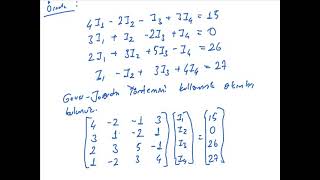 Örnek:
4I₁ - 2I₂ - I₃ + 3I₄ = 15
3I₁ + I₂ - 2I₃ + I₄ = 0
2I₁ + 3I₂ + 5I₃ - I₄ = 26
I₁ - 2I₂ + 3I₃ + 4I₄ = 27
Gauss-Jordan Yöntemini kullanarak akımları
bulunuz.
[4 -2 -1 3] [I₁] = [15]
[3 1 -2 1] [I₂] = [0]
[2 3 5 -1] [I₃] = [26]
[1 -2 3 4] [I₄] = [27]